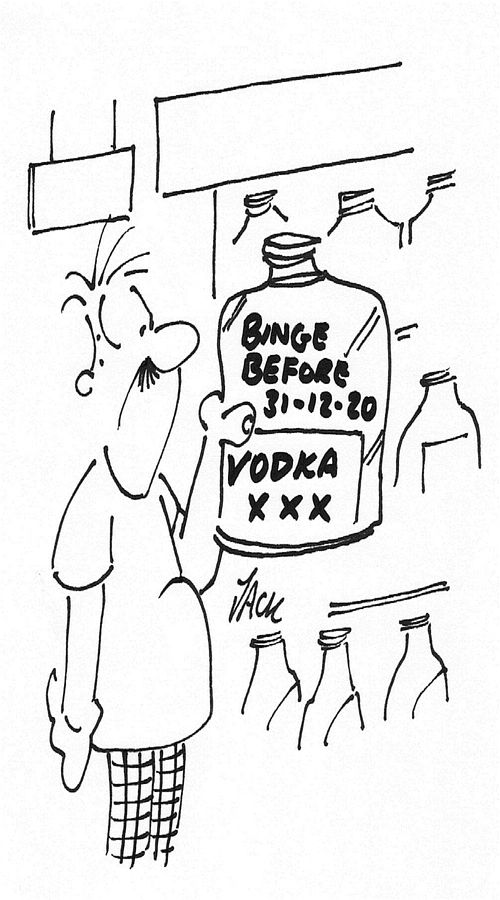 BINGE
BEFORE
31-12-20
VODKA
XXX
JACK